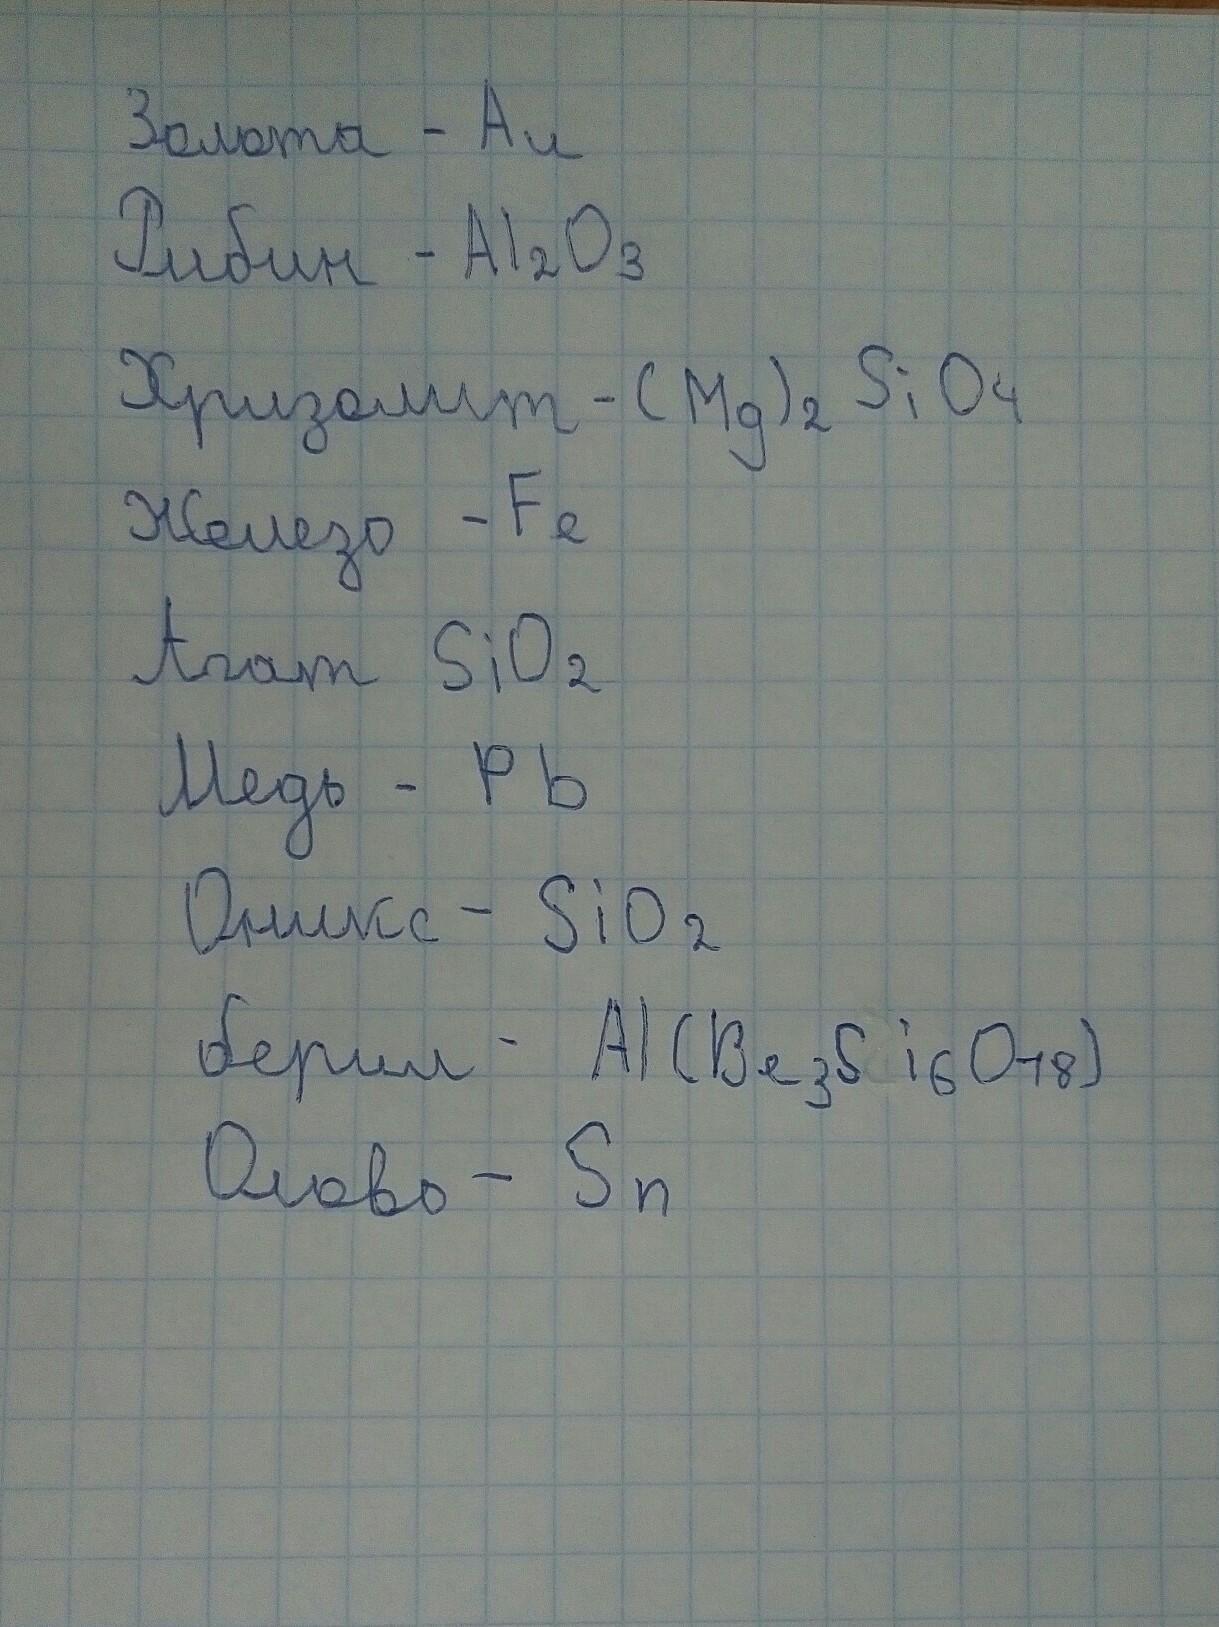 Золота - Au
Рибин - Al2O3
Хризолит - (Mg)2 SiO4
Железо - Fe
Агат SiO2
Медь - Pb
Оникс - SiO2
берил - Al(Be3Si6O18)
Олово - Sn